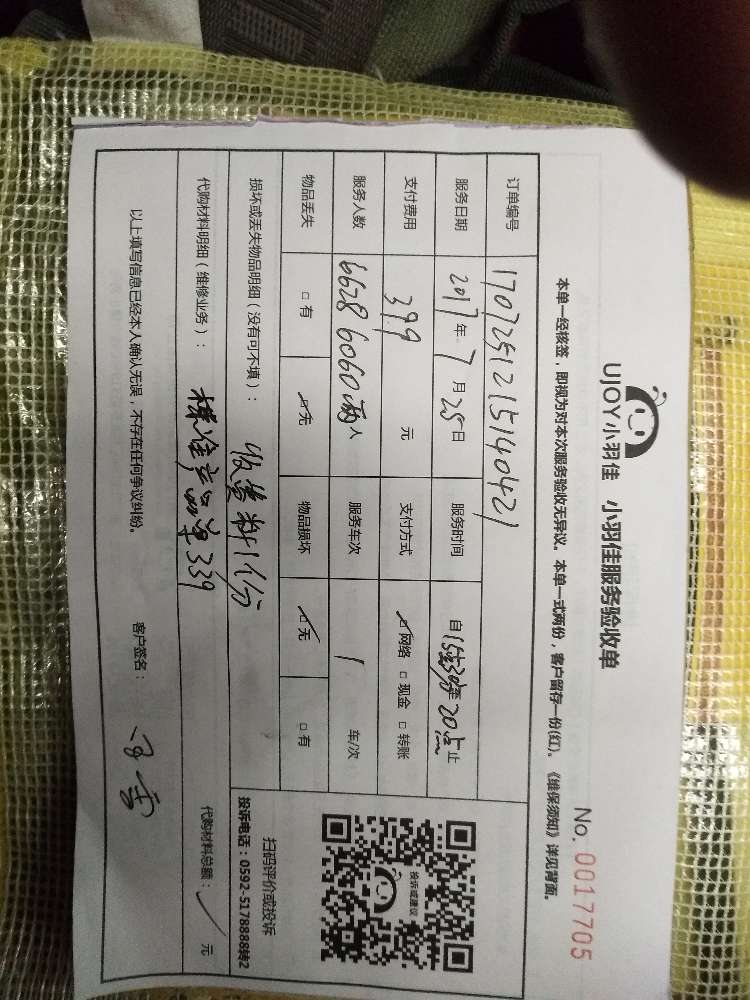 UJOY小羽佳 小羽佳服务验收单
No. 0017705
本单一经核签，即视为对本次服务验收无异议。本单一式两份，客户留存一份(红)。《维保须知》详见背面。
订单编号 1707251215140421
服务日期 2017年 7月25日 服务时间 自 15点30分至20点 止
支付费用 399 元 支付方式 ☑网络 □现金 □转账
服务人数 6628 6060 两人 服务车次 1 车/次
物品丢失 □有 ☑无 物品损坏 ☑无 □有
损坏或丢失物品明细（没有可不填）： 收资料1份
代购材料明细（维修业务）： 产品单339 代购材料总额： 元
以上填写信息已经本人确认无误，不存在任何争议纠纷。 客户签名：
投诉或建议
扫码评价或投诉
投诉电话：0592-5178888转2